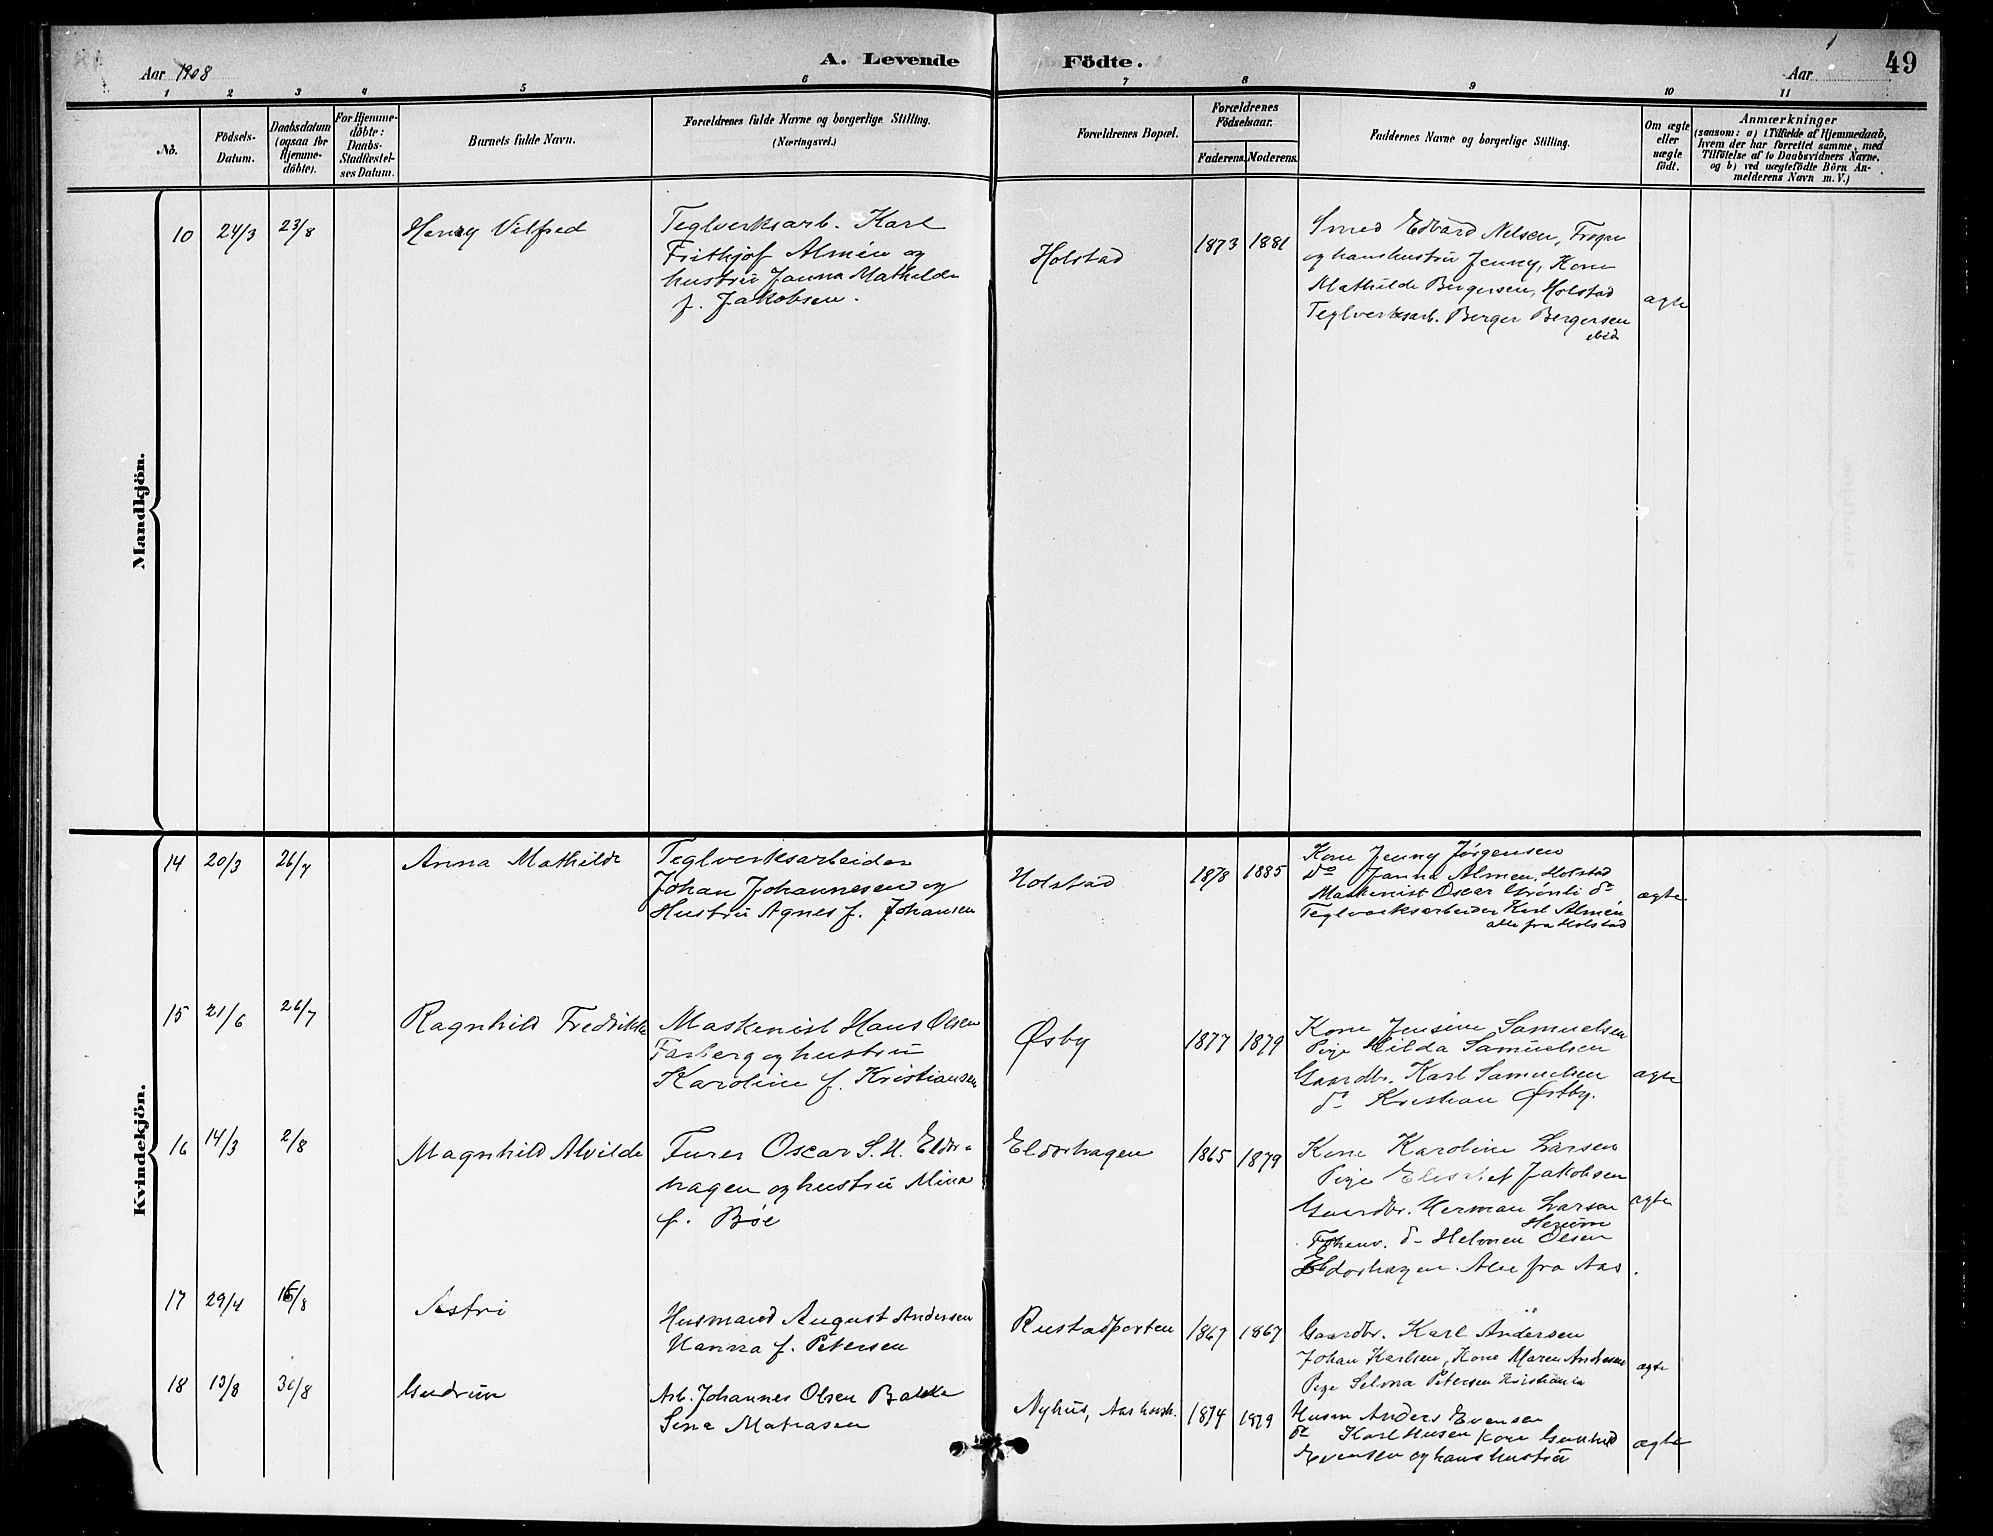 Aar 1908
A. Levende Födte.
Aar
49
1 2 3 4 5 6 7 8 9 10 11
No.
Födsels-
Datum.
Daabsdatum
(ogsaa for
Hjemme-
döbte).
For Hjemme-
döbte:
Daabs-
Stadfæstel-
ses Datum.
Barnets fulde Navn.
Forældrenes fulde Navne og borgerlige Stilling.
(Næringsvei.)
Forældrenes Bopæl.
Forældrenes
Födselsaar.
Faderens. Moderens.
Faddernes Navne og borgerlige Stilling.
Om ægte
eller
uægte
födt.
Anmærkninger
(saasom: a) i Tilfælde af Hjemmedaab,
hvem der har forrettet samme, med
Tilföielse af to Daabsvidners Navne,
og b) ved uægtefödte Börn An-
melderens Navn m. V.)
Mandkjön.
10 24/3 23/8 Henry Vilfred
Teglverksarb. Karl
Frithjof Almén og
hustru Janna Mathilde
f. Jakobsen.
Holstad
1873 1881
Smed Edvard Nilsen, Frogn
og hans hustru Jenny, Kone
Mathilde Bergersen, Holstad
Teglverksarb. Berger Bergersen
ibid
ægte
Kvindekjön.
14 20/3 26/7 Anna Mathilde
Teglverksarbeider
Johan Johannesen og
Hustru Agnes f. Johansen
Holstad
1878 1885
Kone Jenny Jørgensen
do Janna Almen, Holstad
Maskenist Oscar Grönli do
Teglverksarbeider Karl Almén
alle fra Holstad
ægte
15 21/6 26/7 Ragnhild Fredrikke
Maskenist Hans Olsen
Farberg og hustru
Karoline f. Kristiansen
Øsby
1877 1879
Kone Jensine Samuelsen
Pige Hilda Samuelsen
Gaardbr. Karl Samuelsen
do Kristian Østby.
ægte
16 14/3 2/8 Magnhild Alvilde
Furer Oscar S. H. Eldor-
hagen og hustru Mina
f. Bøe
Eldorhagen
1865 1879
Kone Karoline Larsen
Pige Elisabet Jakobsen
Gaardbr. Herman Larsen
do Helmen Olsen
Eldorhagen. Alle fra Aas.
ægte
17 29/4 16/8 Astri
Husmand August Andersen
Hanna f. Petersen
Rustadporten
1867 1867
Gaardbr. Karl Andersen
Johan Karlsen, Kone Maren Andresen
Pige Selma Petersen Kristiania
ægte
18 13/8 30/8 Gudrun
Arb. Johannes Olsen Bakke
Sina Matiasen
Nyhus, Aas
1874 1879
Husm Anders Evensen
do Karl Husen Kone Gunhild
Evensen og hans hustru
ægte